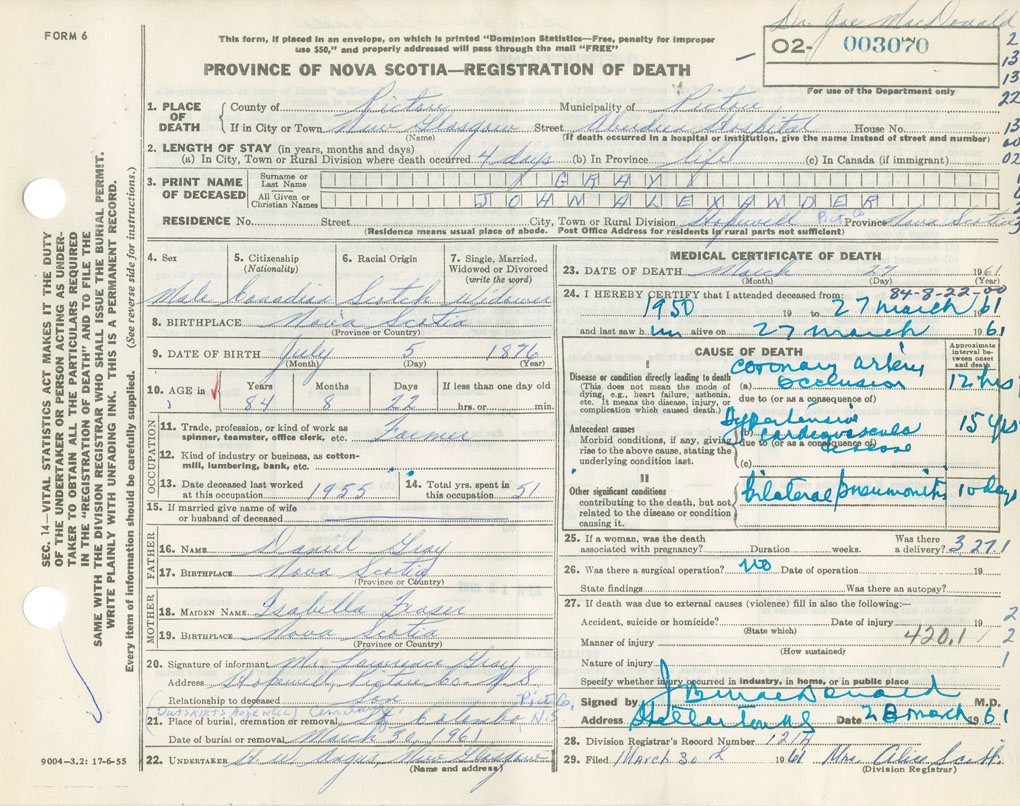 Dr. Joe MacDonald
FORM 6
This form, if placed in an envelope, on which is printed "Dominion Statistics—Free, penalty for improper
use $50," and properly addressed will pass through the mail "FREE"
O2- 003070
For use of the Department only
PROVINCE OF NOVA SCOTIA—REGISTRATION OF DEATH
1. PLACE OF DEATH
County of Pictou Municipality of Pictou
If in City or Town New Glasgow Street Aberdeen Hospital House No.
(Name) (If death occurred in a hospital or institution, give the name instead of street and number)
2. LENGTH OF STAY (in years, months and days)
(a) In City, Town or Rural Division where death occurred 4 days (b) In Province life (c) In Canada (if immigrant)
3. PRINT NAME OF DECEASED
Surname or Last Name GRAY
All Given or Christian Names JOHN ALEXANDER
RESIDENCE No. Street City, Town or Rural Division Hopewell Pict Co Province Nova Scotia
(Residence means usual place of abode. Post Office Address for residents in rural parts not sufficient)
4. Sex 5. Citizenship (Nationality) 6. Racial Origin 7. Single, Married, Widowed or Divorced (write the word)
Male Canadian Scotch Widower
8. BIRTHPLACE Nova Scotia
(Province or Country)
9. DATE OF BIRTH July 5 1876
(Month) (Day) (Year)
10. AGE in Years Months Days If less than one day old
84 8 22 hrs. or min.
OCCUPATION
11. Trade, profession, or kind of work as
spinner, teamster, office clerk, etc. Farmer
12. Kind of industry or business, as cotton-
mill, lumbering, bank, etc.
13. Date deceased last worked
at this occupation 1955
14. Total yrs. spent in
this occupation 51
15. If married give name of wife
or husband of deceased
FATHER
16. NAME Daniel Gray
17. BIRTHPLACE Nova Scotia
(Province or Country)
MOTHER
18. MAIDEN NAME Isabella Fraser
19. BIRTHPLACE Nova Scotia
(Province or Country)
20. Signature of informant Mr. Lawrence Gray
Address Hopewell Pictou Co. N.S
Relationship to deceased Son
(OUTSKIRTS HOPEWELL) Cemetery Pict Co,
21. Place of burial, cremation or removal St Columba N.S
Date of burial or removal March 30, 1961
22. UNDERTAKER H. W. Angus, New Glasgow
(Name and address)
MEDICAL CERTIFICATE OF DEATH
23. DATE OF DEATH March 27 1961
(Month) (Day) (Year)
84-8-22-00
24. I HEREBY CERTIFY that I attended deceased from:
1950 19 to 27 march 61
and last saw h im alive on 27 march 1961
CAUSE OF DEATH
Approximate interval between onset and death
I
Disease or condition directly leading to death
(This does not mean the mode of
dying, e.g., heart failure, asthenia,
etc. It means the disease, injury, or
complication which caused death.)
(a) coronary artery occlusion 12 hrs
due to (or as a consequence of)
Antecedent causes
Morbid conditions, if any, giving
rise to the above cause, stating the
underlying condition last.
(b) Hypertensive cardiovascular disease 15 yrs
due to (or as a consequence of)
(c)
II
Other significant conditions
contributing to the death, but not
related to the disease or condition
causing it.
Bilateral pneumonitis 10 days
25. If a woman, was the death
associated with pregnancy? Duration weeks. Was there a delivery? 3271
26. Was there a surgical operation? no Date of operation 19
State findings Was there an autopsy?
27. If death was due to external causes (violence) fill in also the following:—
Accident, suicide or homicide? Date of injury 19
(State which)
Manner of injury 420.1
(How sustained)
Nature of injury
Specify whether injury occurred in industry, in home, or in public place
Signed by J B MacDonald M.D.
Address Stellarton NS Date 28 march 1961
28. Division Registrar's Record Number 121A
29. Filed March 30th 1961 Mrs. Alice Scott.
(Division Registrar)
SEC. 14—VITAL STATISTICS ACT MAKES IT THE DUTY
OF THE UNDERTAKER OR PERSON ACTING AS UNDER-
TAKER TO OBTAIN ALL THE PARTICULARS REQUIRED
IN THE "REGISTRATION OF DEATH" AND TO FILE THE
SAME WITH THE DIVISION REGISTRAR WHO SHALL ISSUE THE BURIAL PERMIT.
WRITE PLAINLY WITH UNFADING INK. THIS IS A PERMANENT RECORD.
Every item of information should be carefully supplied. (See reverse side for instructions.)
9004—3.2: 17-6-55